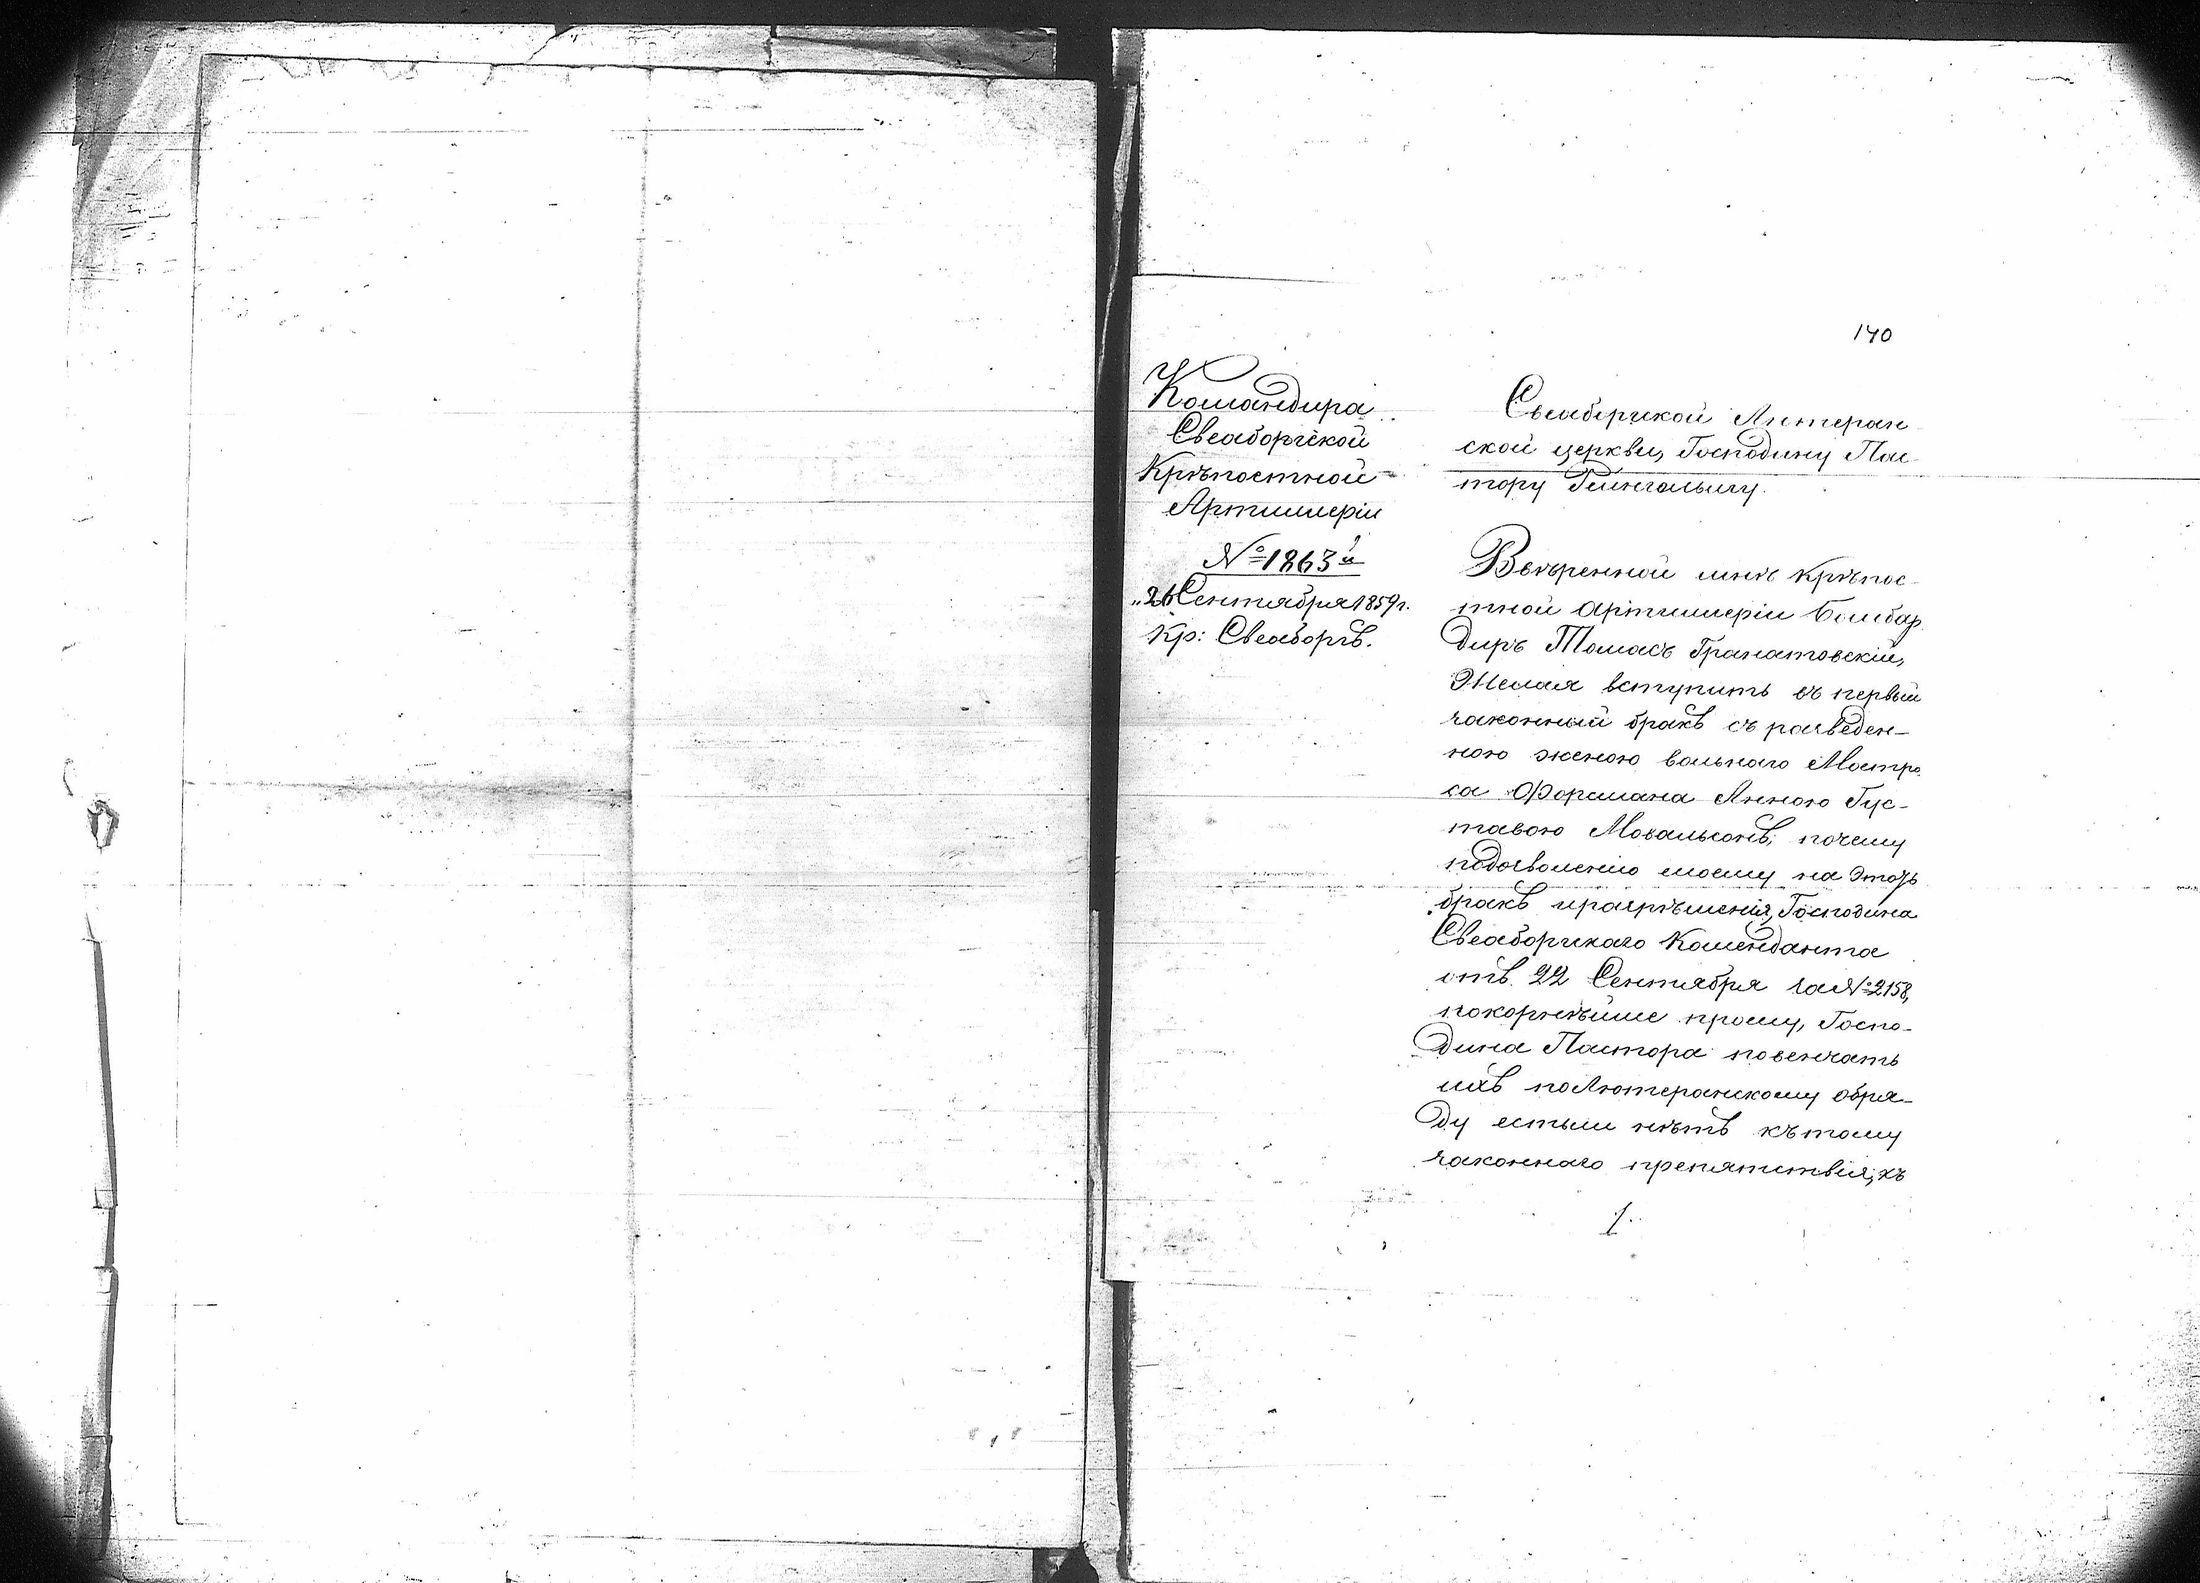 140
Командира
Свеаборгской
Крѣпостной
Артиллеріи
№ 1863й
„26 Сентября 1859 г.
Кр: Свеаборгъ.
Свеаборгской Лютеран
ской церкви, Господину Пас
тору
Ввѣренной мнѣ крѣпос
тной артиллеріи Бомбар
диръ Томасъ Гранатовскій,
желая вступить въ первый
законный бракъ съ разведен-
ною женою вольнаго Матро
са Форсмана Анною Гус-
тавою почему
подозволенію моему на этотъ
бракъ иразрѣшенія, Господина
Свеаборгскаго Коменданта
отъ 22 Сентября за № 2158,
покорнѣйше прошу, Госпо-
дина Пастора повенчать
ихъ поЛютеранскому обря-
ду естьли нѣтъ къ тому
законнаго препятствія, къ
1.